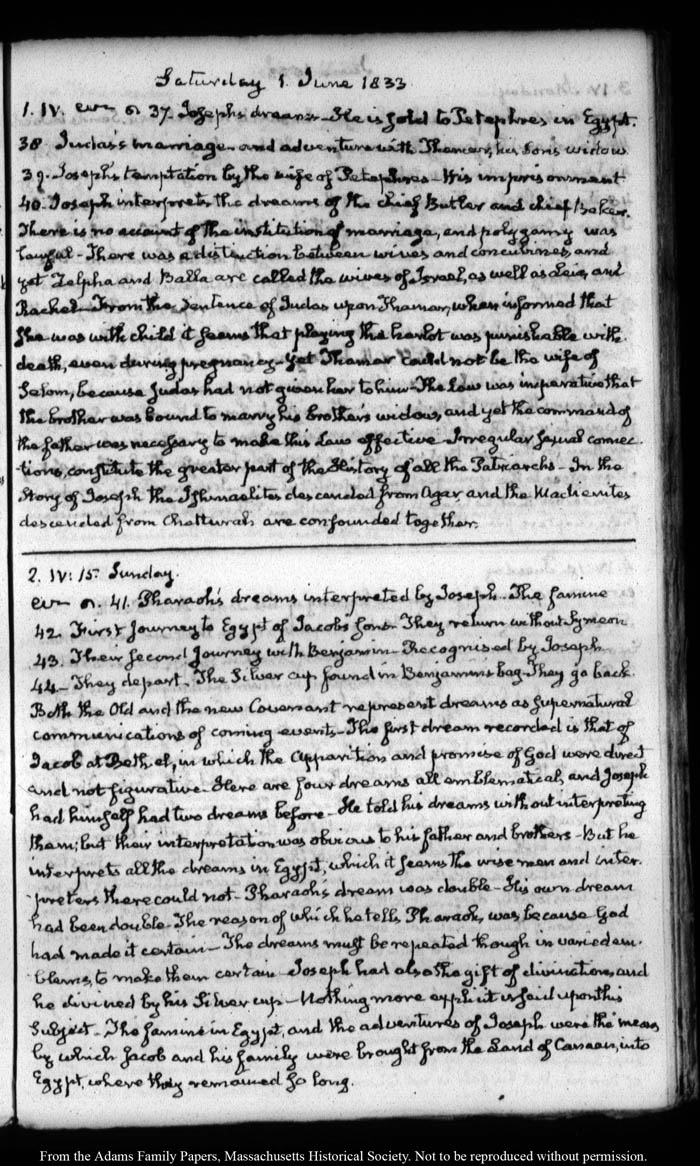 Saturday 1. June 1833.
1. IV. Gen. 37. Joseph's dreams. He is sold to Petephres in Egypt.
38. Judas's marriage and adventure with Thamar, his Son's widow
39. Joseph's temptation by the wife of Petephres - His imprisonment
40. Joseph interprets the dreams of the chief Butler and chief Baker.
There is no account of the institution of marriage, and polygamy was
lawful - There was a distinction between wives and concubines, and
yet Zelpha and Balla are called the wives of Israel, as well as Leia, and
Rachel - From the Sentence of Judas upon Thamar, when informed that
She was with child it seems that playing the harlot was punishable with
death, even during pregnancy - Yet Thamar could not be the wife of
Selom, because Judas had not given her to him - The Law was imperative that
the brother was bound to marry his brother's widow, and yet the command of
the father was necessary to make this Law effective - Irregular sexual connec-
tions, constitute the greater part of the History of all the Patriarchs - In the
Story of Joseph the Ishmaelites descended from Agar, and the Madienites
descended from Chetturah are confounded together.
2. IV: 15. Sunday.
41. Pharaoh's dreams interpreted by Joseph. The famine
42. First Journey to Egypt of Jacob's Sons. They return without Symeon
43. Their Second Journey with Benjamin - Recognised by Joseph
44. They depart. The Silver cup found in Benjamins bag. They go back.
Both the Old and the new Covenant represent dreams as Supernatural
communications of coming events - The first dream recorded is that of
Jacob at Bethel, in which the apparition and promise of God were direct
and not figurative. Here are four dreams all emblematical, and Joseph
had himself had two dreams before - He told his dreams without interpreting
them; but their interpretation was obvious to his father and brothers - But he
interprets all the dreams in Egypt, which it seems the wise men and inter-
preters there could not - Pharaoh's dream was double - His own dream
had been double. The reason of which he tells Pharaoh, was, because God
had made it certain - The dreams must be repeated though in varied em-
blems, to make them certain - Joseph had also the gift of divination, and
he divined by his Silver cup - Nothing more explicit is said upon this
Subject - The famine in Egypt, and the adventures of Joseph were the means
by which Jacob and his family were brought from the Land of Canaan, into
Egypt, where they remained so long.
From the Adams Family Papers, Massachusetts Historical Society. Not to be reproduced without permission.